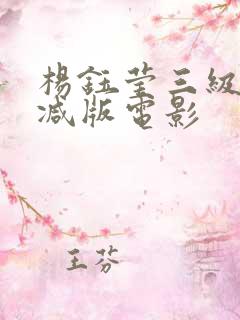 楊鈺莹三級
减版電影
王芬